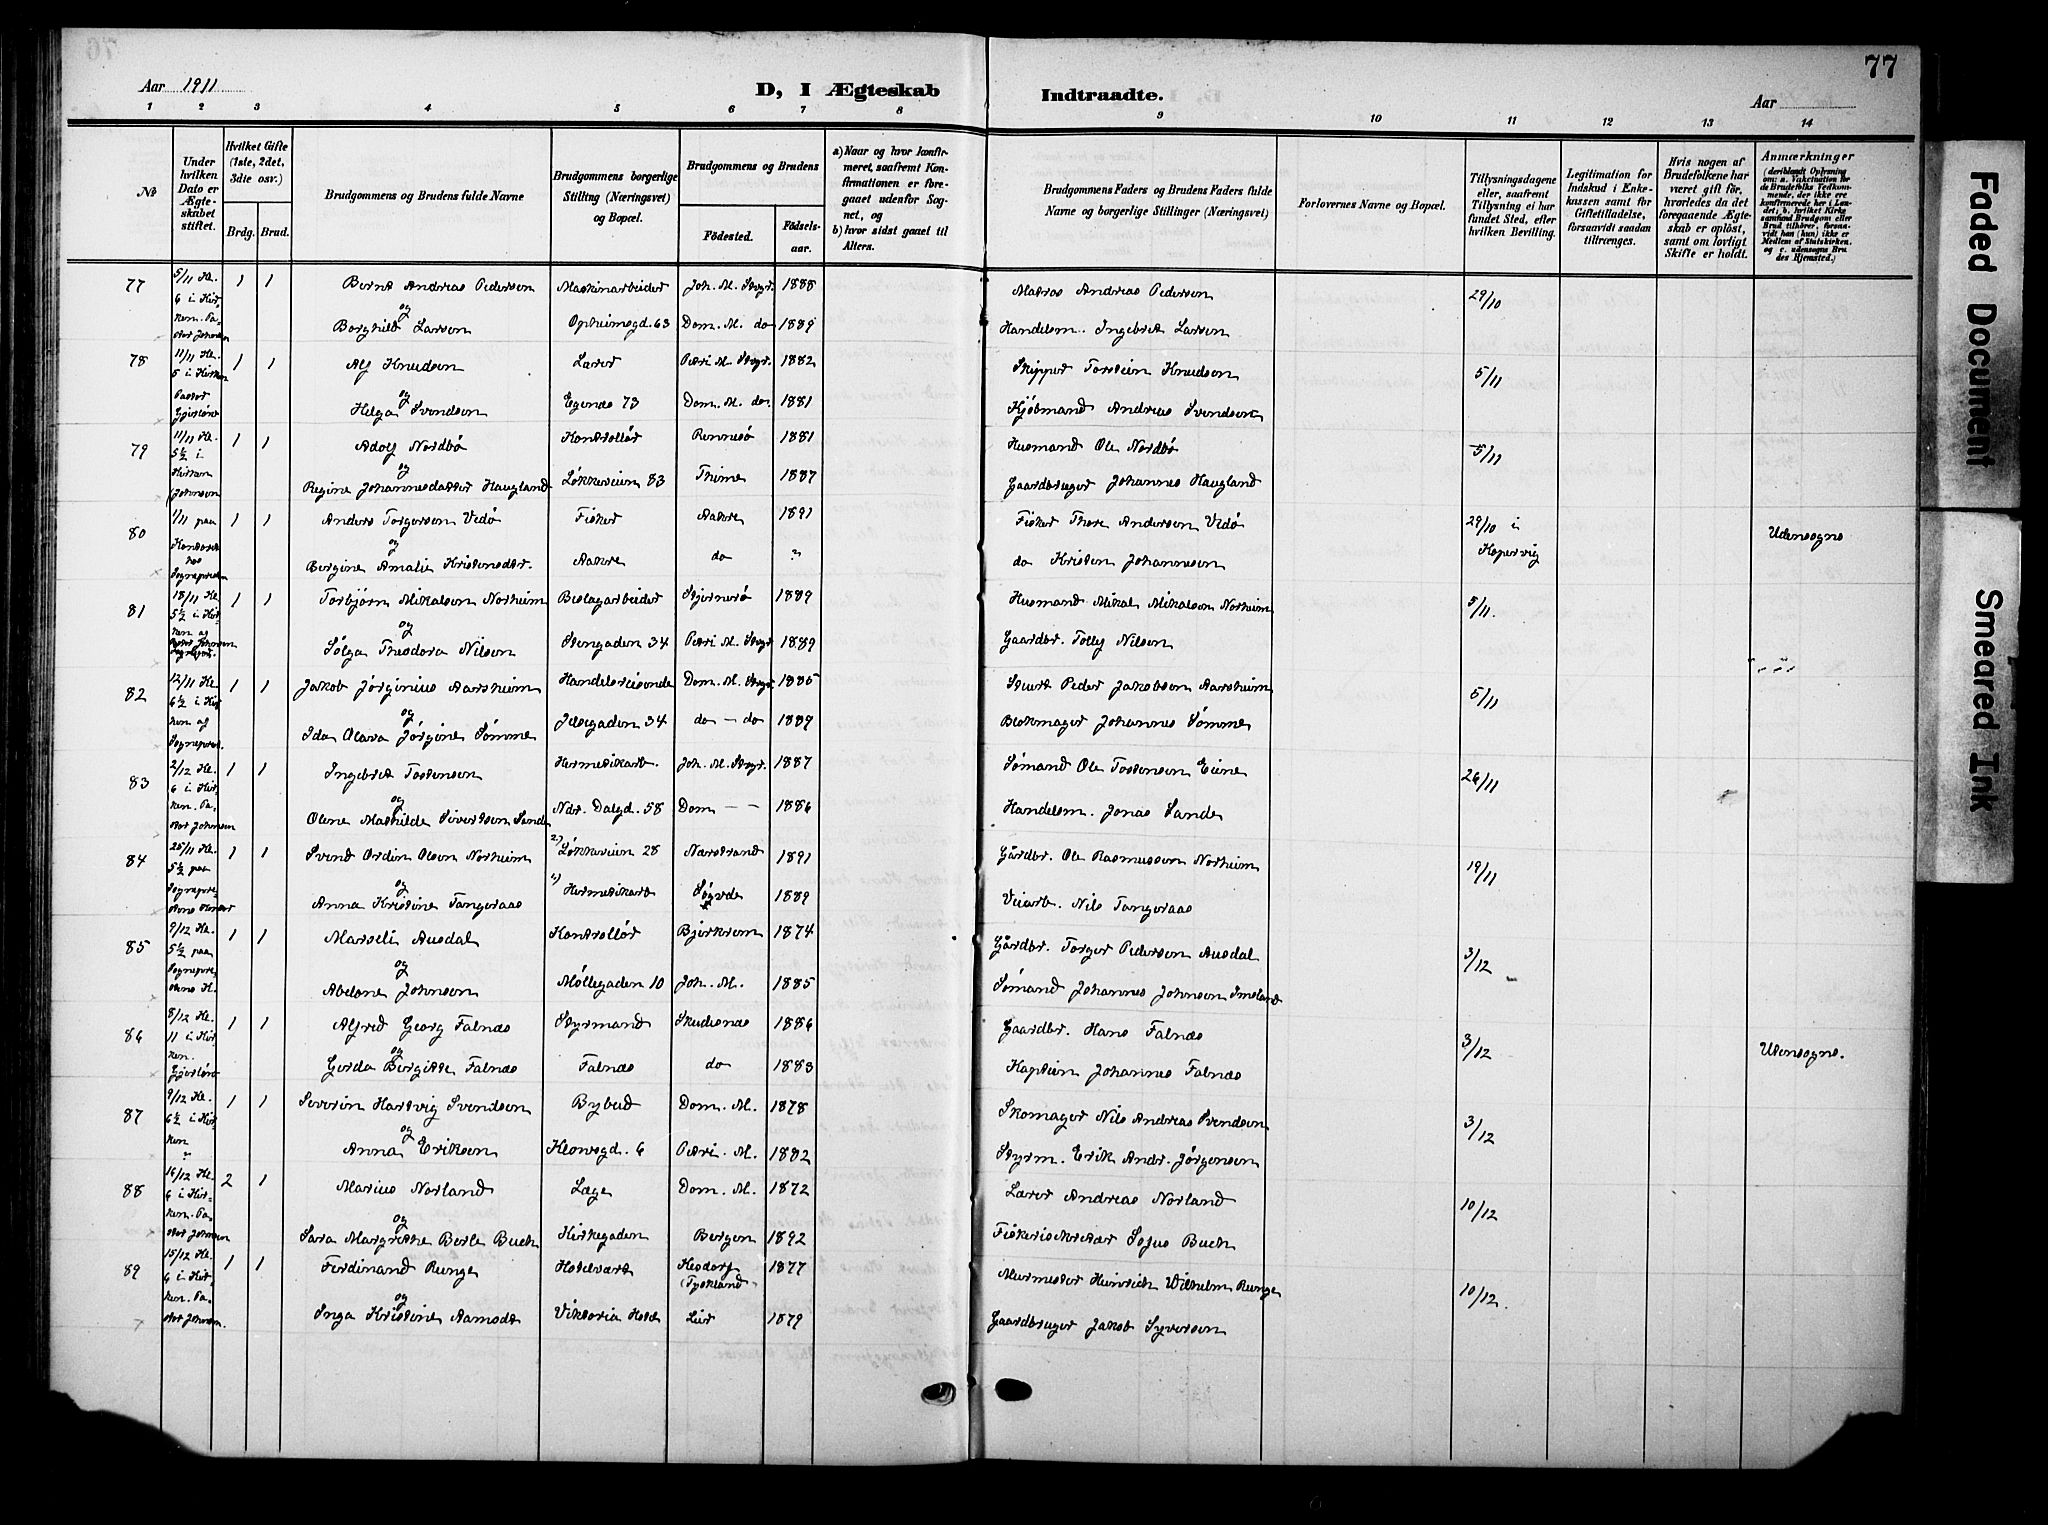 76
77
Aar 1911
D, I Ægteskab Indtraadte.
Aar
1 2 3 4 5 6 7 8 9 10 11 12 13 14
№
Under hvilken Dato er Ægteskabet stiftet.
Hvilket Gifte (1ste, 2det, 3die osv.)
Brdg. Brud.
Brudgommens og Brudens fulde Navne
Brudgommens borgerlige Stilling (Næringsvei) og Bopæl.
Brudgommens og Brudens
Fødested. Fødselsaar.
a) Naar og hvor konfirmeret, saafremt Konfirmationen er foregaaet udenfor Sognet, og
b) hvor sidst gaaet til Alters.
Brudgommens Faders og Brudens Faders fulde Navne og borgerlige Stillinger (Næringsvei)
Forlovernes Navne og Bopæl.
Tillysningsdagene eller, saafremt Tillysning ei har fundet Sted, efter hvilken Bevilling.
Legitimation for Indskud i Enkekassen samt for Giftetilladelse, forsaavidt saadan tiltrænges.
Hvis nogen af Brudefolkene har været gift før, hvorledes da det foregaaende Ægteskab er opløst, samt om lovligt Skifte er holdt.
Anmærkninger
(deriblandt Oplysning om: a. Vakcination for de Brudefolks Vedkommende, der ikke ere konfirmerede her i Landet; b. hvilket Kirkesamfund Brudgom eller Brud tilhører, forsaavidt han (hun) ikke er Medlem af Statskirken, og c. udensogns Brudes Hjemsted.)
77 5/11 Kl. 6 i Kirken. Pastor Johnsen 1 1 Bernt Andreas Pedersen Maskinarbeider Joh. M. Stvgr. 1888 Matros Andreas Pedersen 29/10
og
Borghild Larsen Opheimsgd. 63 Dom. M. do 1889 Handelsm. Ingebret Larsen
78 11/11 Kl. 5 i Kirken Pastor Gjerløw 1 1 Alf Knudsen Lærer Petri M. Stvgr. 1882 Skipper Torstein Knudsen 5/11
og
Helga Svendsen Egenæs 73 Dom. M. do. 1881 Kjøbmand Andreas Svendsen
79 11/11 Kl. 5½ i Kirken Johnsen 1 1 Adolf Nordbø Kontrollør Rennesø 1881 Husmand Ole Nordbø 5/11
og
Regine Johannesdatter Haugland Løkkeveien 83 Thime 1887 Gaardbruger Johannes Haugland
80 1/11 paa Kontoret hos Sognepresten 1 1 Anders Torgersen Vedø Fisker Aakre 1891 Fisker Thore Andersen Vedø 29/10 i Kopervig Udensogns
og
Bergine Amalie Kristensdtr. Aakre do " do Kristen Johannesen
81 18/11 Kl. 5½ i Kirken af Pastor Johnsen 1 1 Torbjørn Mikalsen Norheim Beslagarbeider Stjernerø 1889 Husmand Mikal Mikalsen Norheim 5/11.
og
Sølga Theodora Nilsen Stengaden 34 Petri M. Stvgr 1889 Gaardbr. Tolly Nilsen
82 12/11 Kl. 6½ i Kirken af Sognepres. 1 1 Jakob Jørginius Aarsheim Handelsreisende Dom. M. Stvgr. 1885 Stuert Peder Jakobsen Aarsheim 5/11
og
Ida Olava Jørgine Sømme Jelsegaden 34 do — do 1889 Blokmager Johannes Sømme
83 2/12 Kl. 6 i Kirken. Pastor Johnsen 1 1 Ingebret Tostensen Hermetikarb. Joh. M. Stvgr. 1887 Sømand Ole Tostensen Eiene 26/11
og
Olene Mathilde Sivertsen Sande Ndr. Dalgd. 58 Dom — — 1886 Handelsm. Jonas Sande
84 25/11 Kl. 5½ paa Sogneprestens Kontor 1 1 Svend Ordin Olsen Norheim 2) Løkkeveien 28 Nærstrand 1891 Gårdbr. Ole Rasmussen Norheim 19/11
og
Anna Kristine Tangeraas 1) Hermetikarb Søgnde 1889 Veiarb. Nils Tangeraas
85 9/12 Kl. 5½ paa Sogneprestens K. 1 1 Marseli Ausdal Kontrollør Bjerkrem 1874 Gårdbr. Torger Pedersen Ausdal 3/12
og
Abelone Johnsen Møllegaden 10 Joh. M. 1885 Sømand Johannes Johnsen Imsland
86 8/12 Kl. 11 i Kirken. Gjerløw 1 1 Alfred Georg Falnæs Styrmand Skudesnæs 1886 Gaardbr. Hans Falnæs 3/12 Udensogns.
og
Gerda Bergitte Falnæs Falnæs do 1883 Kaptein Johannes Falnæs
87 9/12 Kl. 6½ i Kirken " 1 1 Severin Hartvig Svendsen Bybud Dom. M. 1878 Skomager Nils Andreas Svendsen 3/12
og
Anna Eriksen Kleivegd. 6 Petri. M. 1882 Styrm. Erik Andr. Jørgensen
88 16/12 Kl. 6 i Kirken. Pastor Johnsen 2 1 Marius Norland Læge Dom. M. 1872 Lærer Andreas Norland 10/12
og
Sara Margrethe Berle Buch Kirkegaden Bergen 1892 Fiskerisekretær Sofus Buch
89 15/12 Kl. 6 i Kirken. Pastor Johnsen. 1 1 Ferdinand Runge Hotelvært Kesdorf (Tyskland) 1877 Murmester Heinrich Wilhelm Runge 10/12.
og
Inga Kristine Aamodt Viktoria Hotel Lier 1879 Gaardbruger Jakob Syversen
Faded Document
Smeared Ink